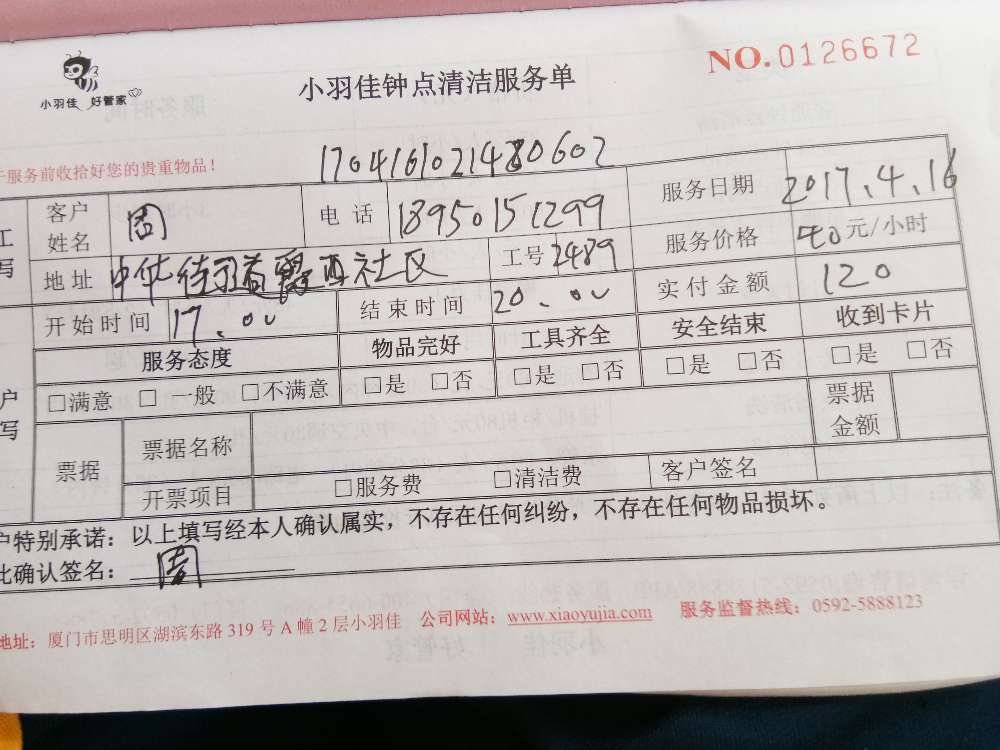 小羽佳 好管家
NO.0126672
小羽佳钟点清洁服务单
于服务前收拾好您的贵重物品！
170416102148 0602
工
写
客户姓名 周 电话 18950151299 服务日期 2017.4.16
地址 中华街 社区 工号 2489 服务价格 40元/小时
开始时间 17.00 结束时间 20.00 实付金额 120
户
写
服务态度 物品完好 工具齐全 安全结束 收到卡片
□满意 □一般 □不满意 □是 □否 □是 □否 □是 □否 □是 □否
票据 票据名称 票据金额
开票项目 □服务费 □清洁费 客户签名
户特别承诺：以上填写经本人确认属实，不存在任何纠纷，不存在任何物品损坏。
此确认签名： 周
地址：厦门市思明区湖滨东路 319 号 A 幢 2 层小羽佳 公司网站：www.xiaoyujia.com 服务监督热线：0592-5888123